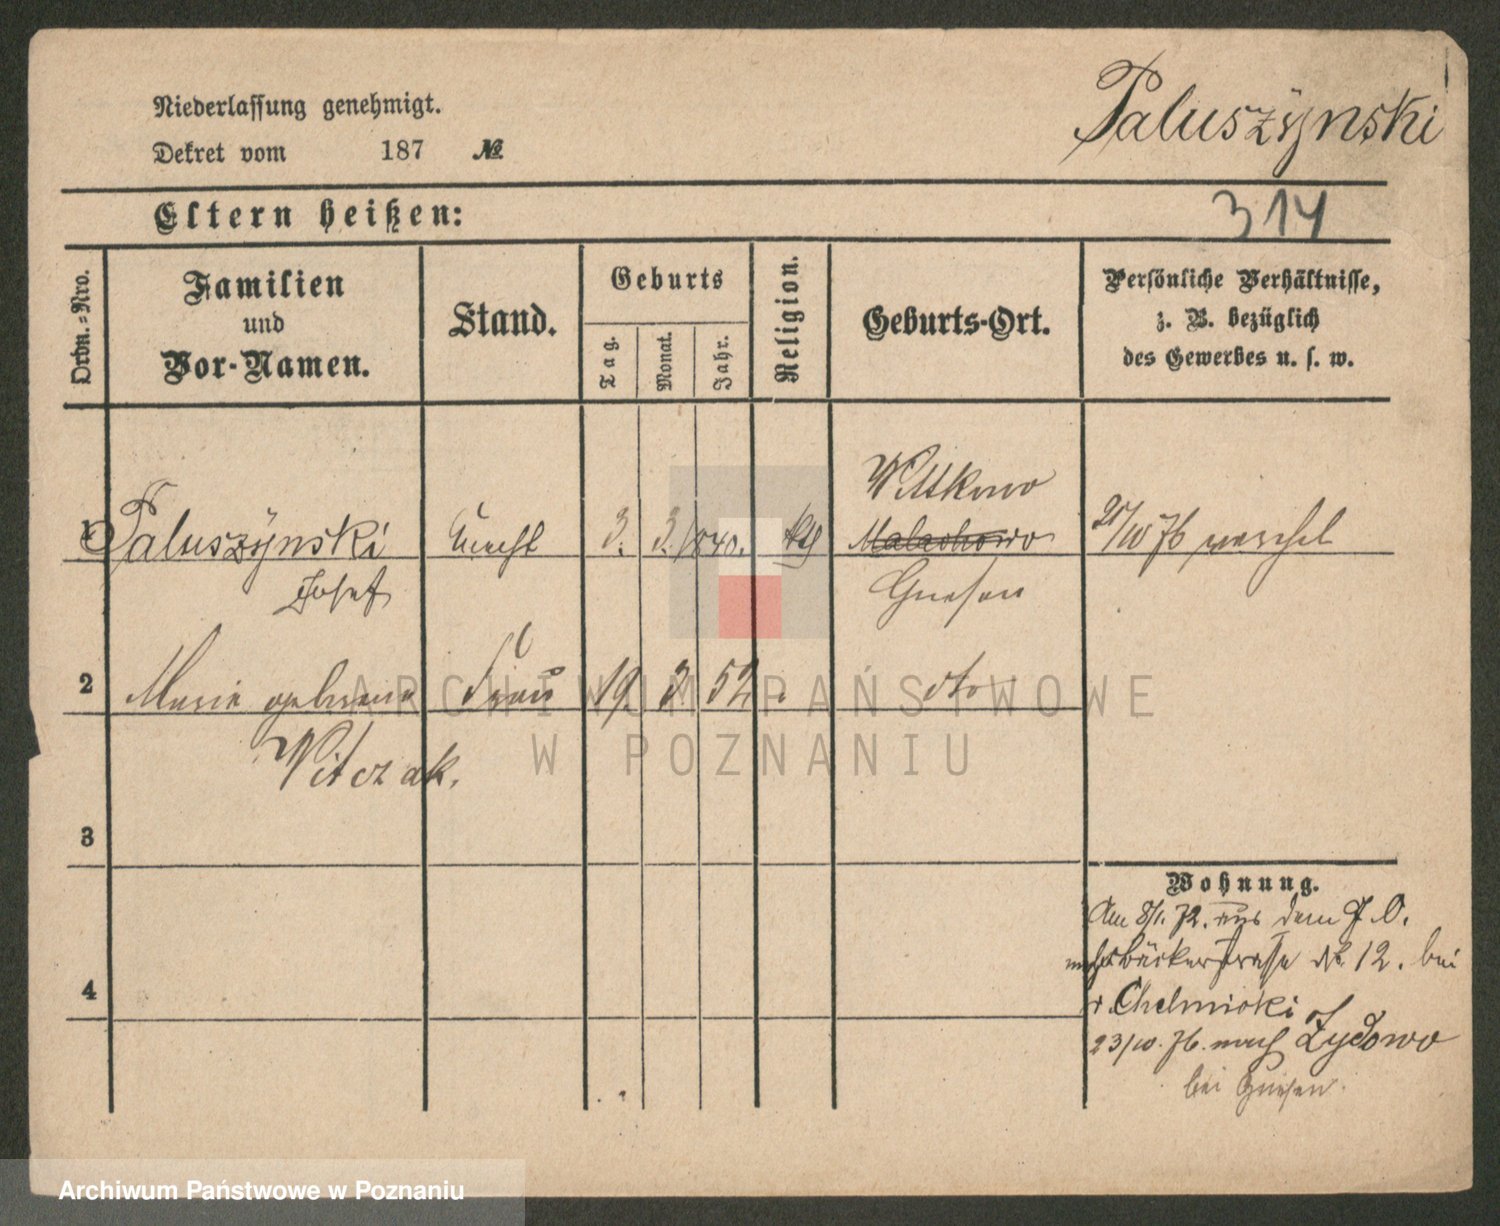 Niederlassung genehmigt.
Paluszÿnski
Dekret vom 187 №
Eltern heißen:
314
Ordn.-Nro.
Familien
und
Vor-Namen.
Stand.
Geburts
Tag.
Monat.
Jahr.
Religion.
Geburts-Ort.
Persönliche Verhältnisse,
z. B. bezüglich
des Gewerbes u. s. w.
Wittkowo
1 Paluszÿnski Knecht 3. 3. 1840. kth Malachowo 21/10 76
Josef
Gnesen
2 Marie geborene Frau 19. 3. 52 dto
Witczak.
3
Wohnung.
Am 8/1. 72. aus dem J. O.
№ 12. bei
4
Chelmicki
23/10. 76. nach Zydowo
bei Gnesen.
ARCHIWUM PAŃSTWOWE
W POZNANIU
Archiwum Państwowe w Poznaniu